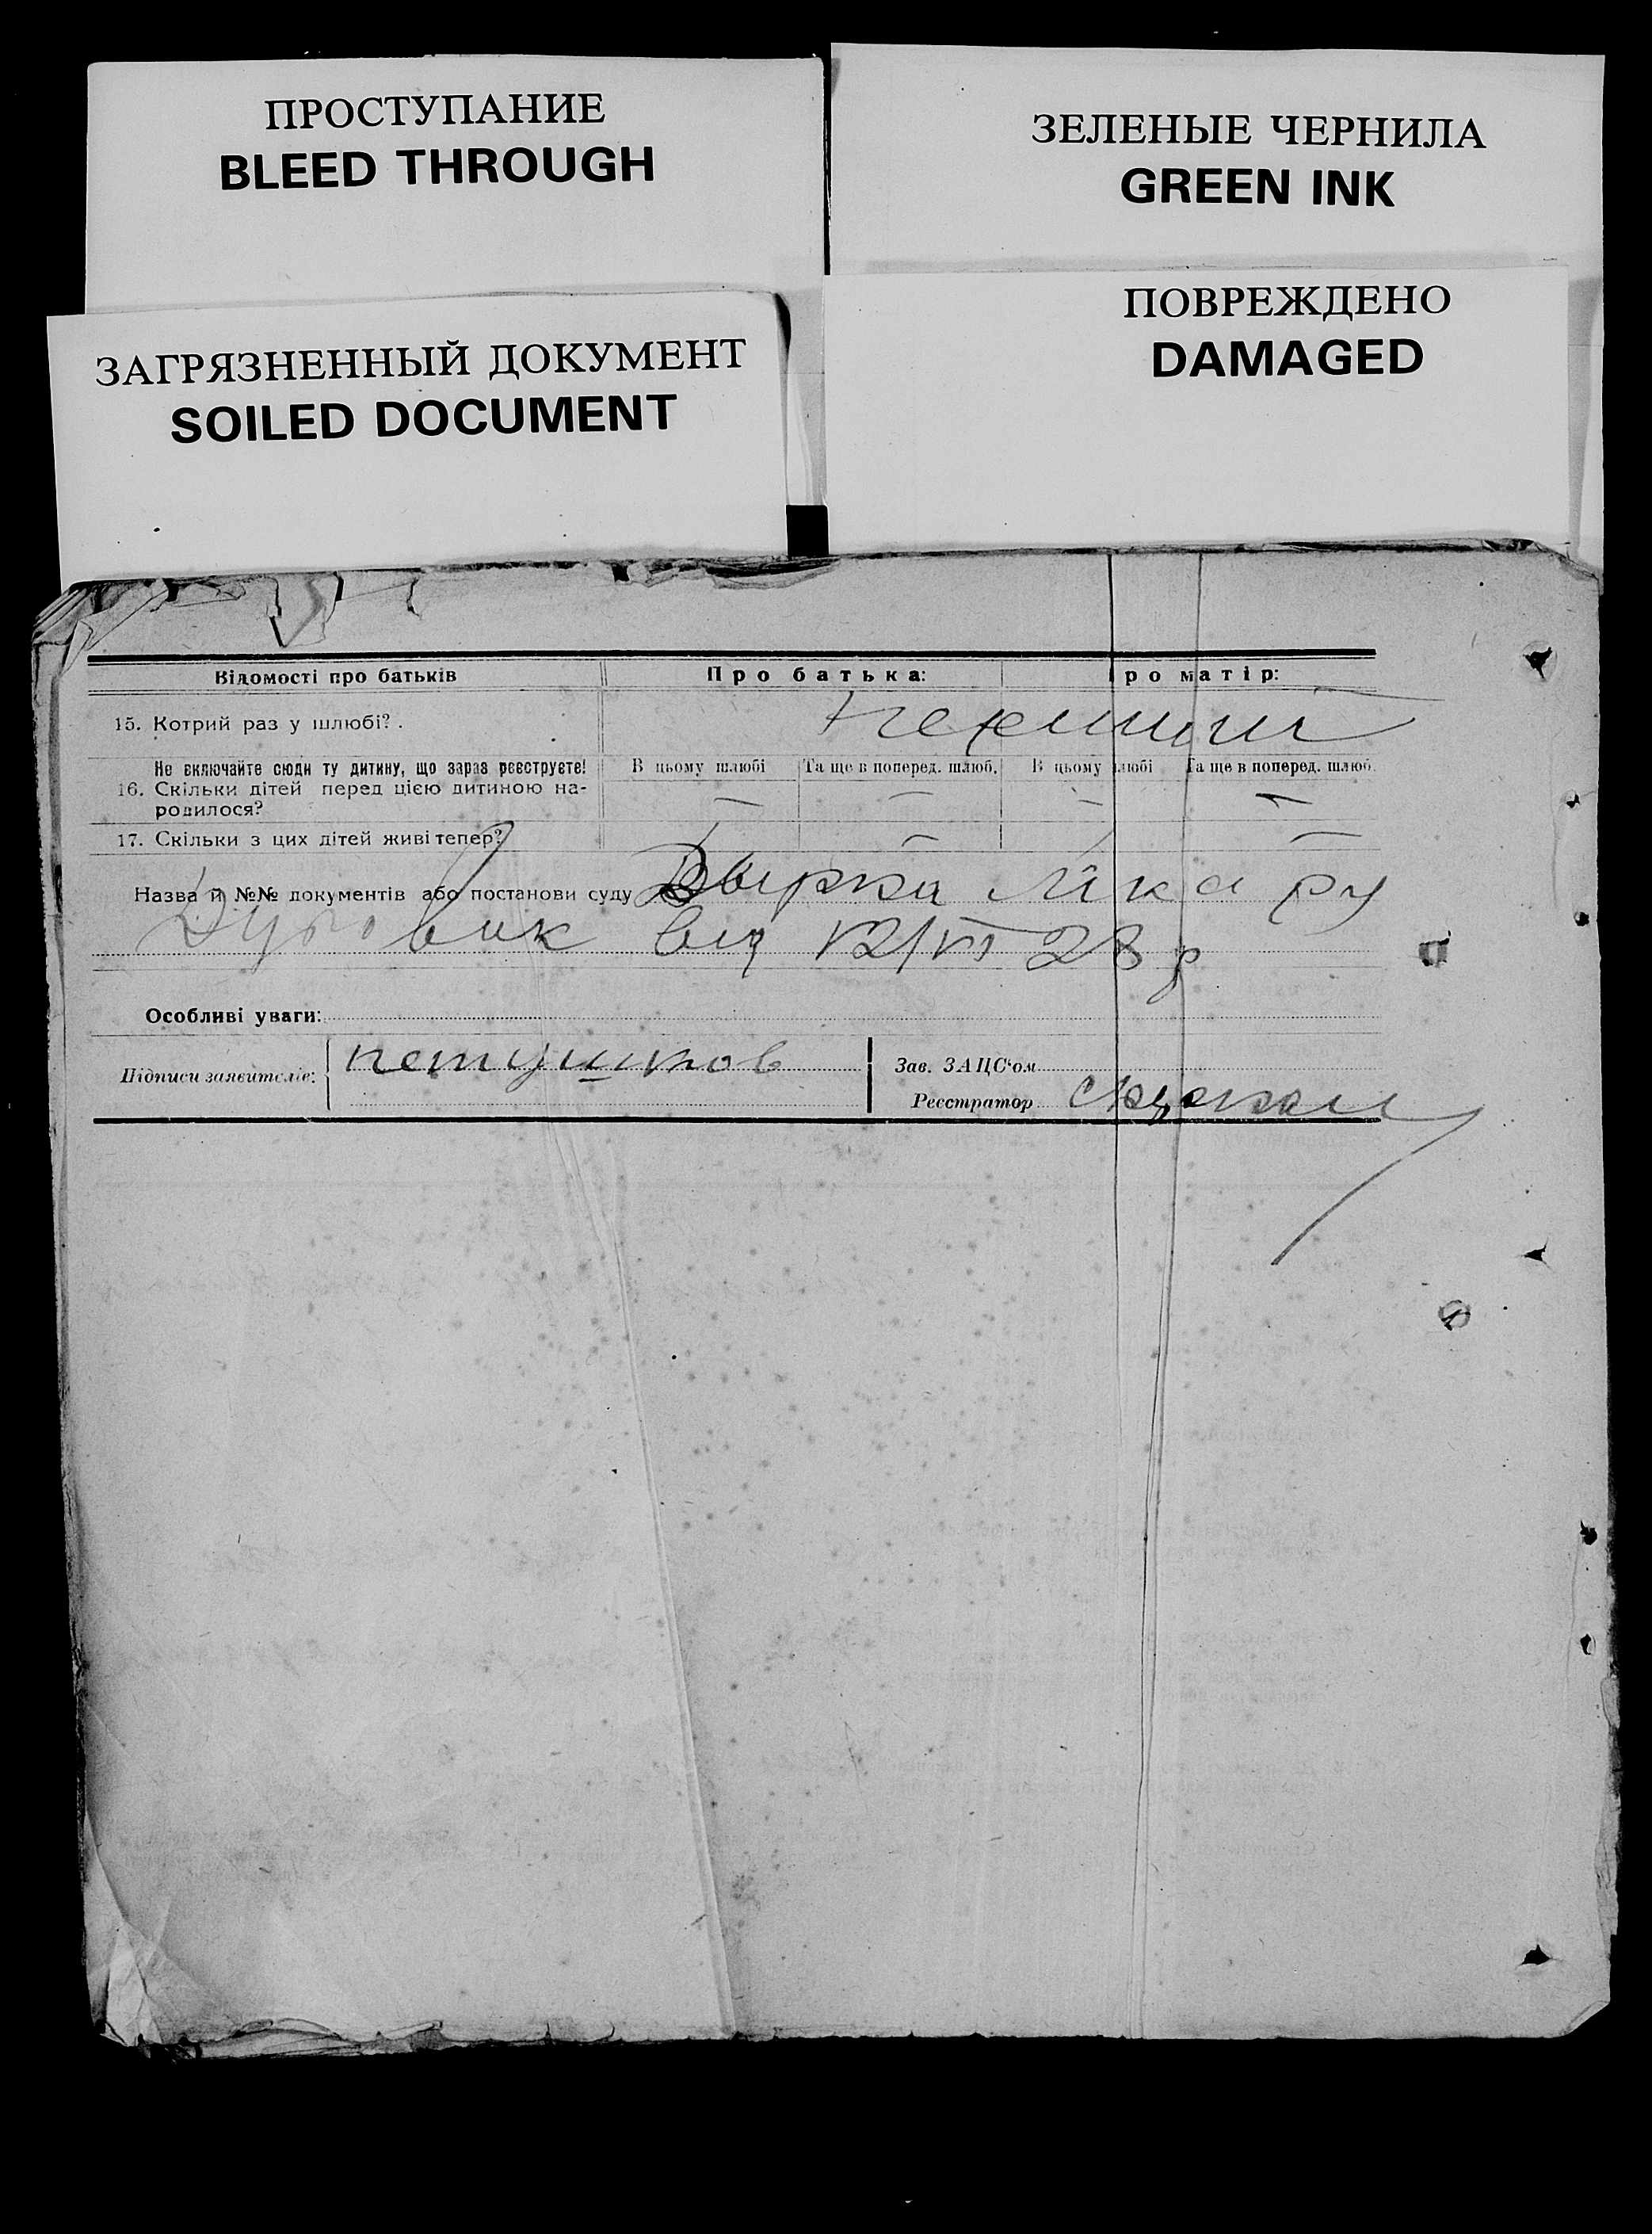 ПРОСТУПАНИЕ
BLEED THROUGH
ЗЕЛЕНЫЕ ЧЕРНИЛА
GREEN INK
ЗАГРЯЗНЕННЫЙ ДОКУМЕНТ
SOILED DOCUMENT
ПОВРЕЖДЕНО
DAMAGED
Відомості про батьків Про батька: ро матір:
15. Котрий раз у шлюбі?.
Не включайте сюди ту дитину, що зараз реєструєте! В цьому шлюбі Та ще в поперед. шлюб. В цьому любі Та ще в поперед. шлюб.
16. Скільки дітей перед цією дитиною на-
родилося? — — — —
17. Скільки з цих дітей живі тепер? — —
Назва й №№ документів або постанови суду Лікару
від 12/VI 28 р
Особливі уваги:
Підписи заявителів: Петушков Зав. ЗАЦС'ом
Реєстратор